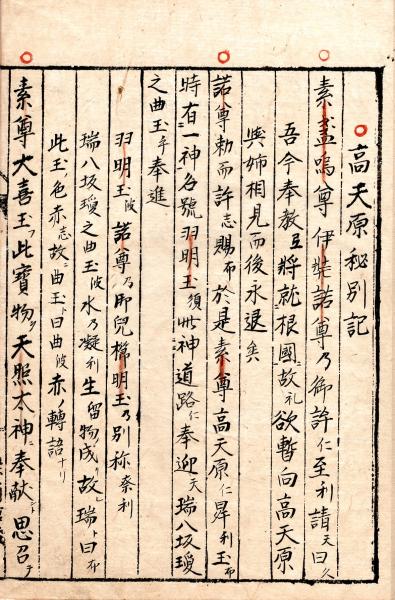 高天原秘別記
素盞嗚尊伊弉諾尊乃御許仁至利請天曰久
吾今奉教互將就根國故礼欲暫向高天原
與姉相見而後永退矣
諾尊勅而許志賜布於是素尊高天原仁昇利玉布
時有一神名號羽明玉須此神道路仁奉迎天瑞八坂瓊
之曲玉乎奉進
羽明玉波諾尊乃御兒櫛明玉乃別称奈利
瑞八坂瓊之曲玉波水乃凝利生留物成リ故ニ瑞ト曰布
此玉色赤志故ニ曲玉ト曰曲波赤ノ轉語ナリ
素尊大喜玉フ此寶物ヲ天照太神ニ奉献ト思召テ